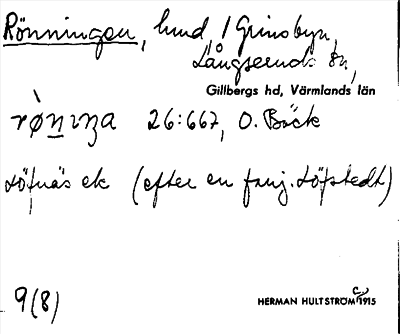 Rönningen, lund, i Grinsbyn,
Långseruds sn,
Gillbergs hd, Värmlands län
rø̀nıŋa 26:667, O. Bäck
Löfnäs ek (efter en fam. Löfstedt)
9(8)
HERMAN HULTSTRÖM 1915